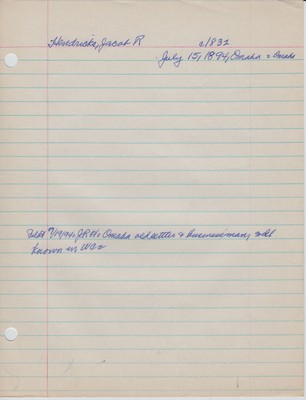 Hendricks, Jacob R c/832
July 15, 1894, Omaha = Omaha
7/19/94: JRH: Omaha old settler & businessman, well
known in WCo